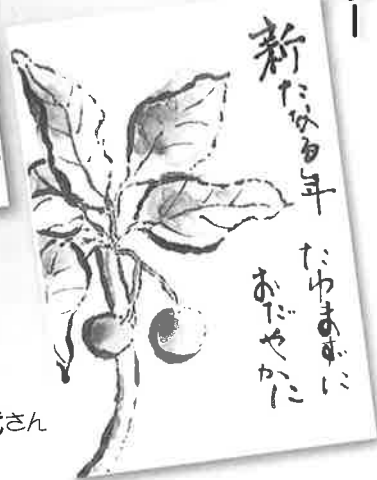 新たなる年
たゆまずに
おだやかに
さん